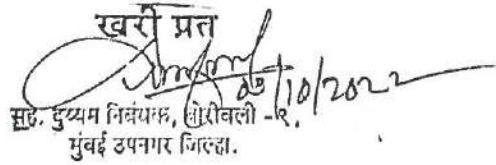 खरी प्रत
07/10/2022
सह. दुय्यम निबंधक, बोरीवली -९.
मुंबई उपनगर जिल्हा.